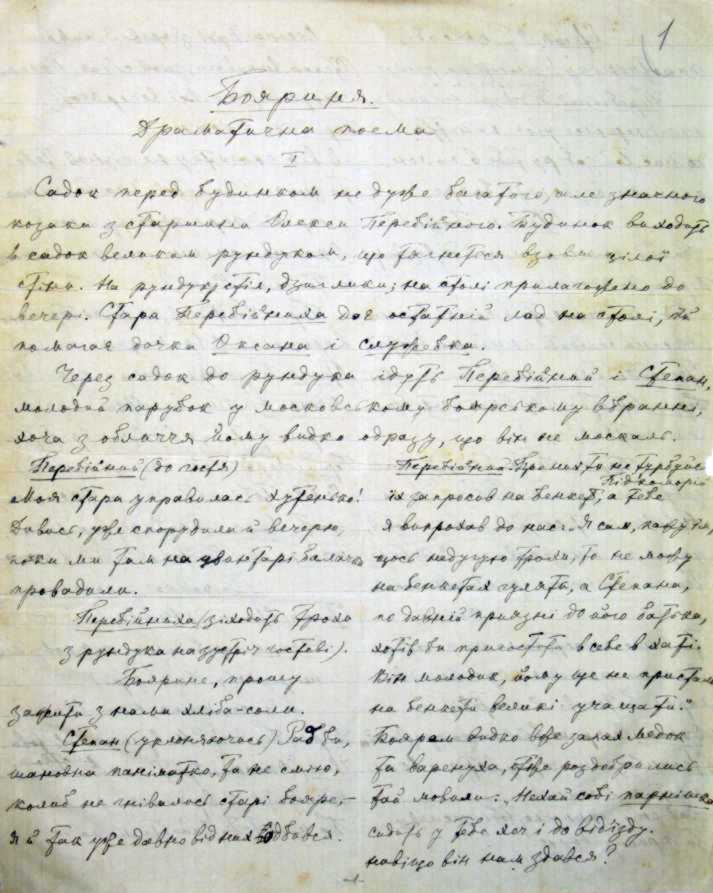 1
Бояриня.
Драматична поема
I
Садок перед будинком не дуже багатого, але значного
козака з старшини Олекси Перебійного. Будинок виходить
в садок великим рундуком, що тягнеться вздовж цілої
стіни. На рундуці стіл, дзиглики; на столі прилагожено до
вечері. Стара Перебійниха дає останній лад на столі, їй
помагає дочка Оксана і служебка.
Через садок до рундука ідуть Перебійний і Степан,
молодий парубок у московському боярському вбранні,
хоча з обличчя йому видко одразу, що він не москаль.
Перебійний (до гостя)
Моя стара управилась хутенько!
Дивись, уже спорудила й вечерю,
поки ми там на цвинтарі балачки
провадили.
Перебійниха (зіходить трохи
з рундука назустріч гостеві).
Боярине, прошу
зажити з нами хліба-соли.
Степан (уклоняючись) Рад би,
шановна паніматко, та не смію,
колиб не гнівались старі бояре,-
я й так уже давно від них одбився.
Перебійний. Про них ти не турбуйсь
Підкоморій
їх запросив на бенкет, а тебе
я випрохав до нас: „Я сам, кажу,
щось нездужаю трохи, то не можу
на бенкетах гулять, а Степана,
по давній приязні до його батька,
хотів би пригостити в себе в хаті.
Він молодик, йому ще не пристало
на бенкети великі учащати."
Боярам видко вже запах медок
та варенуха, отже роздобрились
тай мовили: „Нехай собі парнішка
сидить у тебе хоч і до від'їзду.
навіщо він нам здався?
-1-